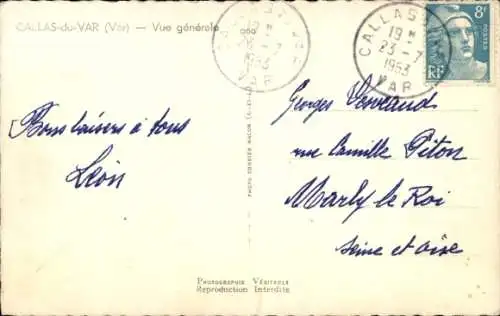 CALLAS-du-VAR (Var) — Vue générale
CALLAS
19 H
23 - 7
1953
VAR
CALLAS
19 H
23 - 7
1953
VAR
8F
POSTES
RF
Bons baisers à tous
Léon
Georges
rue Camille Piton
Marly le Roi
Seine et Oise
PHOTO COMBIER MACON
Photographie Véritable
Reproduction Interdite